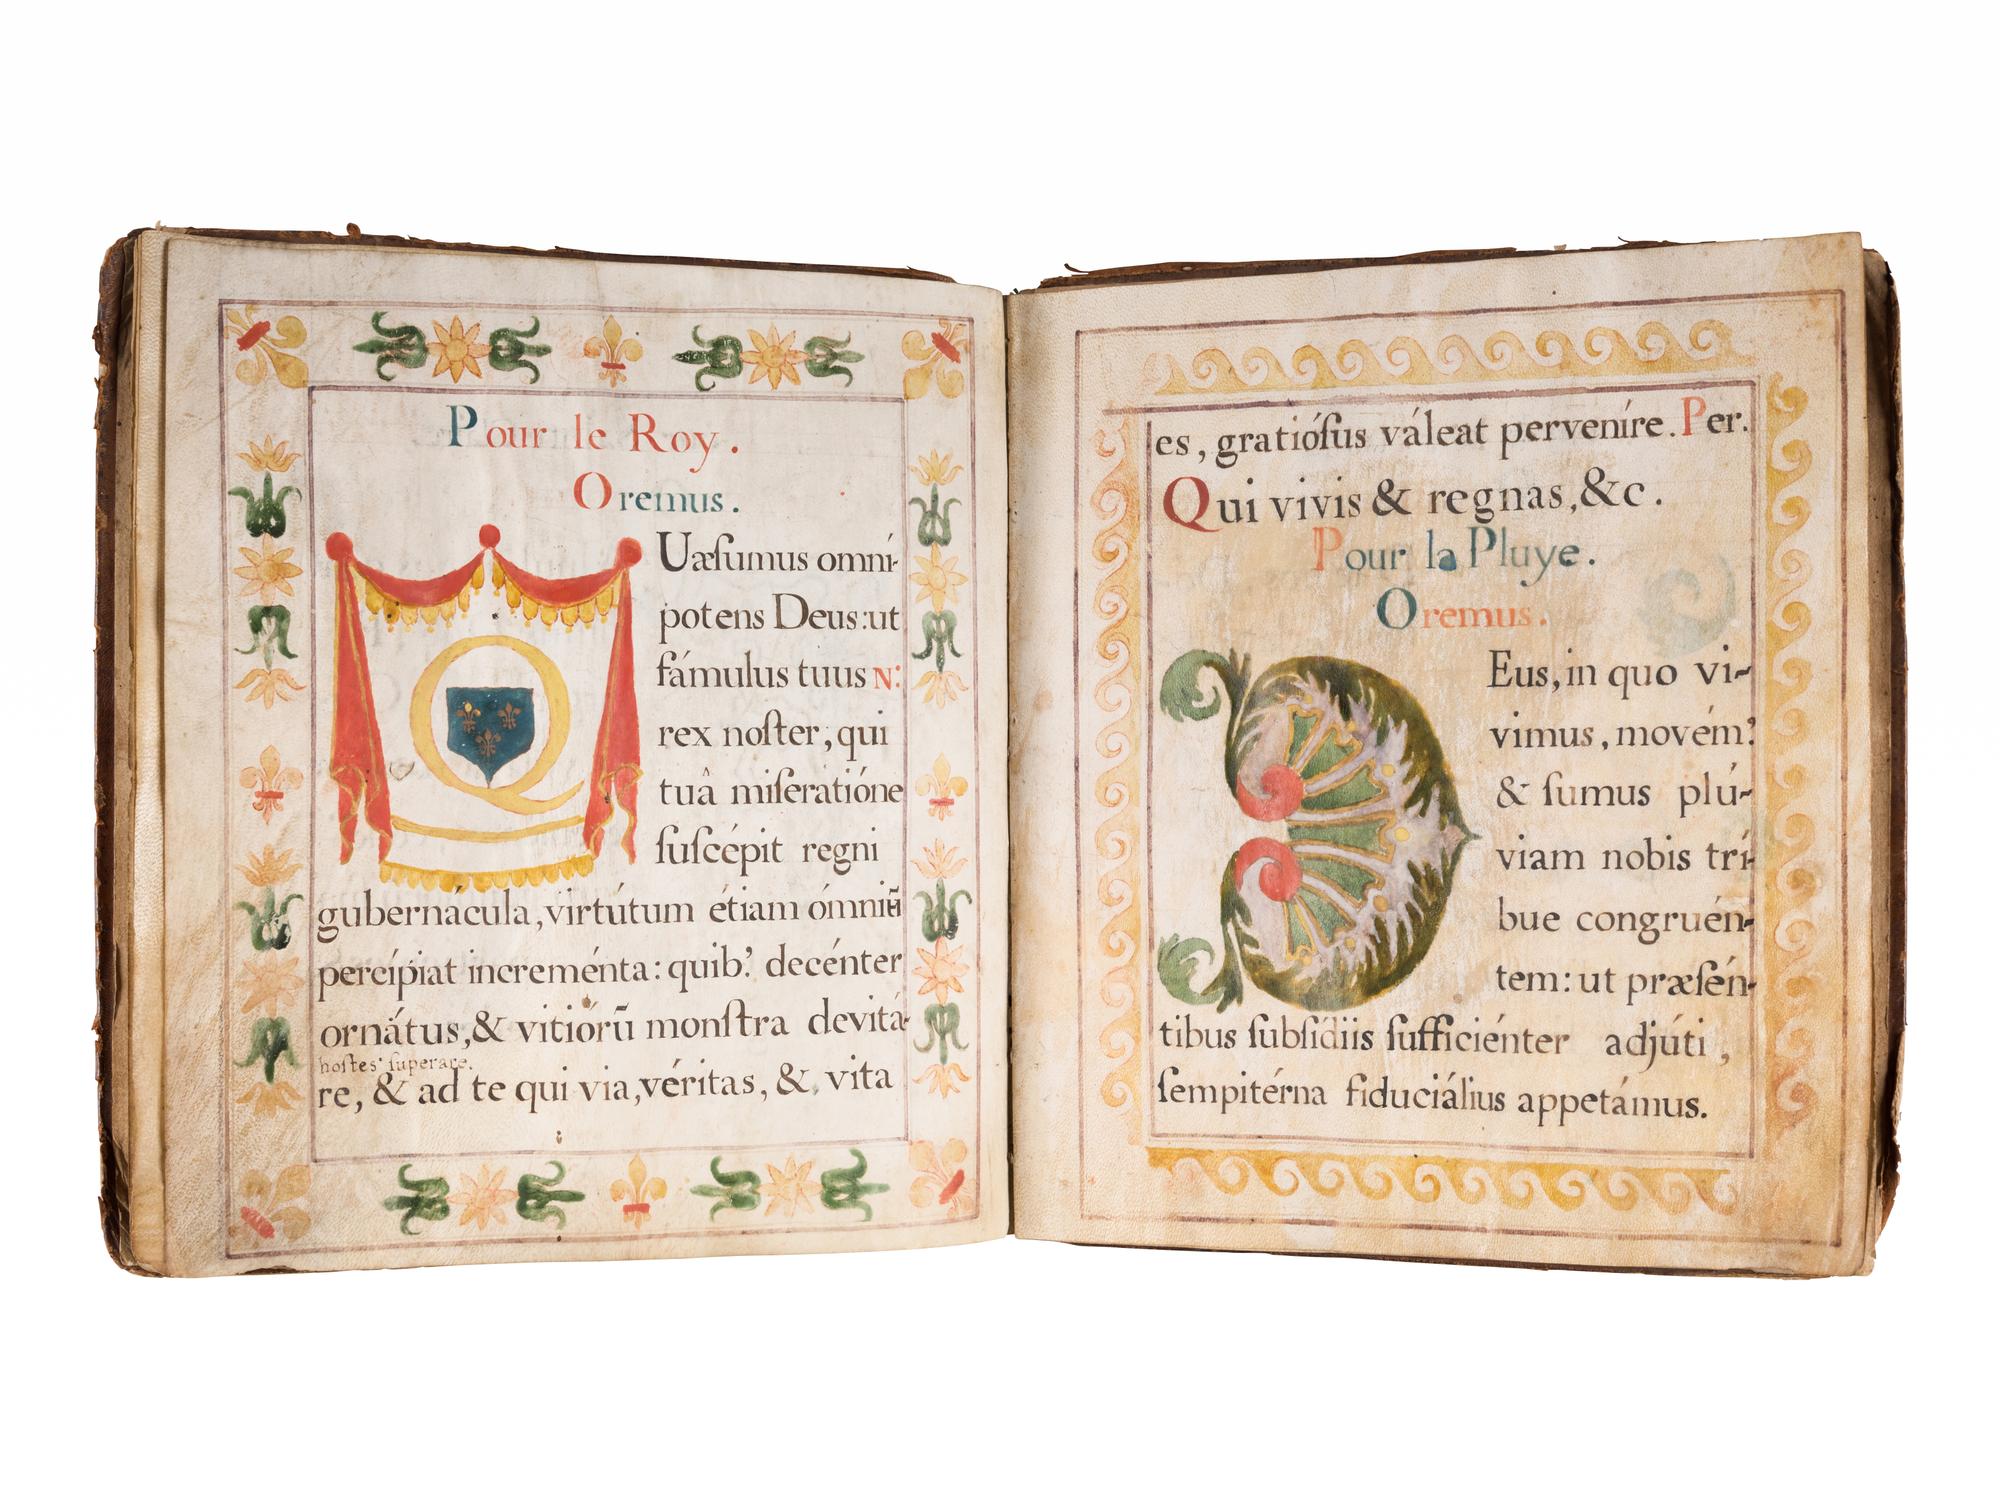 Pour le Roy.
Oremus.
QUæſumus omni-
potens Deus: ut
fámulus tuus N:
rex noſter, qui
tuâ miſeratióne
ſuſcépit regni
gubernácula, virtútum étiam ómniũ
percípiat increménta: quib' decénter
ornátus, & vitiórũ monſtra devitá-
hoſtes ſuperare.
re, & ad te qui via, véritas, & vita
es, gratióſus váleat perveníre. Per.
Qui vivis & regnas, &c.
Pour la Pluye.
Oremus.
DEus, in quo vi-
vimus, movém'
& ſumus plú-
viam nobis trí-
bue congruén-
tem: ut præſén-
tibus ſubſídiis ſufficiénter adjúti,
ſempitérna fiduciálius appetámus.